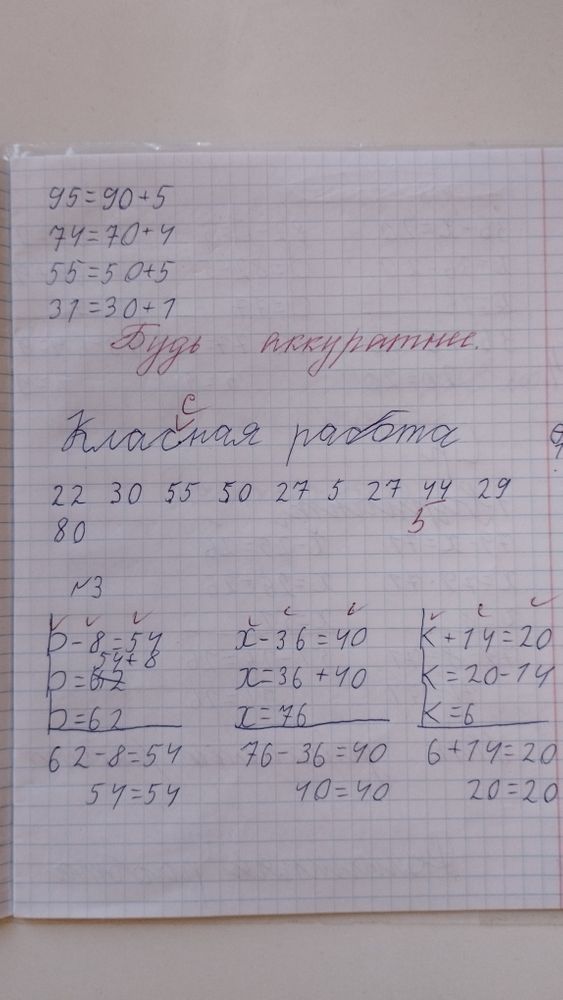 95=90+5
74=70+4
55=50+5
31=30+1
Будь аккуратнее.
с
Класная работа
22 30 55 50 27 5 27 44 29
5
80
№3
b-8=54 x-36=40 к+14=20
54+8
b=62 x=36+40 к=20-14
b=62 x=76 к=6
62-8=54 76-36=40 6+14=20
54=54 40=40 20=20